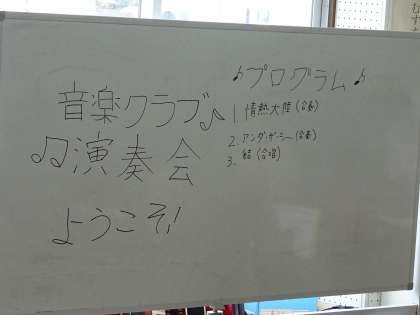 音楽クラブ♪
♫演奏会
ようこそ!
♪プログラム♪
1. 情熱大陸(合奏)
2. アンダーザ・シー(合奏)
3. 結(合唱)